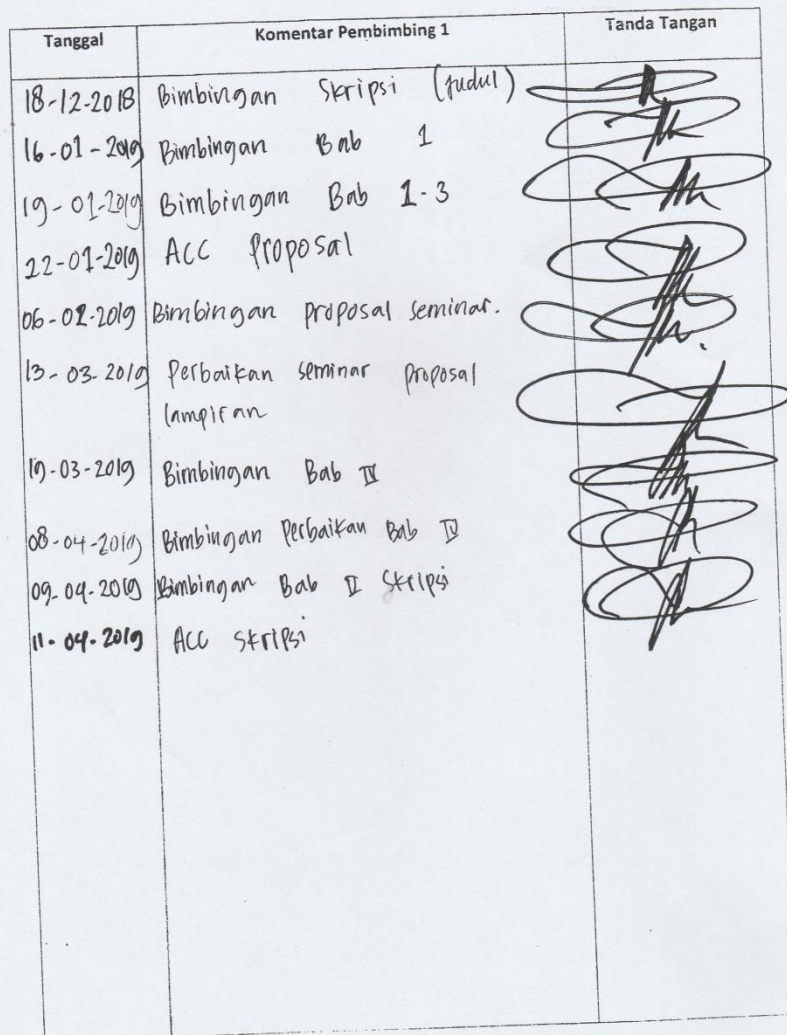 Tanggal Komentar Pembimbing 1 Tanda Tangan
18-12-2018 Bimbingan Skripsi (Judul)
16-01-2019 Bimbingan Bab 1
19-01-2019 Bimbingan Bab 1-3
22-01-2019 ACC Proposal
06-02-2019 Bimbingan proposal seminar.
13-03-2019 Perbaikan seminar proposal
lampiran
19-03-2019 Bimbingan Bab IV
08-04-2019 Bimbingan Perbaikan Bab IV
09-04-2019 Bimbingan Bab V Skripsi
11-04-2019 ACC Skripsi